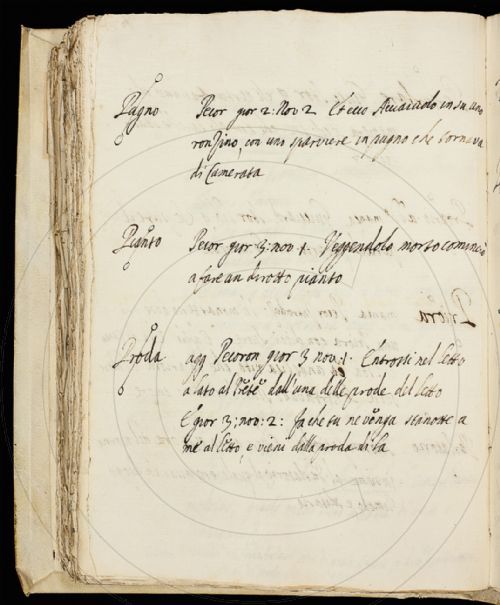 Pugno Pecor gior 2: Nov 2 Et ecco Arrivado in su uno
ronzino, con uno sparviere in pugno che tornava
di Camerata
Pianto Pecor gior 3: nov 1. Veggendolo morto comincio
a fare un dirotto pianto
Proda agg Pecoron gior 3 nov: 1. Entrossi nel letto
a lato al Prete dall'una delle prode del letto
E gior 3; nov: 2: Fa che tu ne venga stanotte a
me al letto, e vieni dalla proda di la